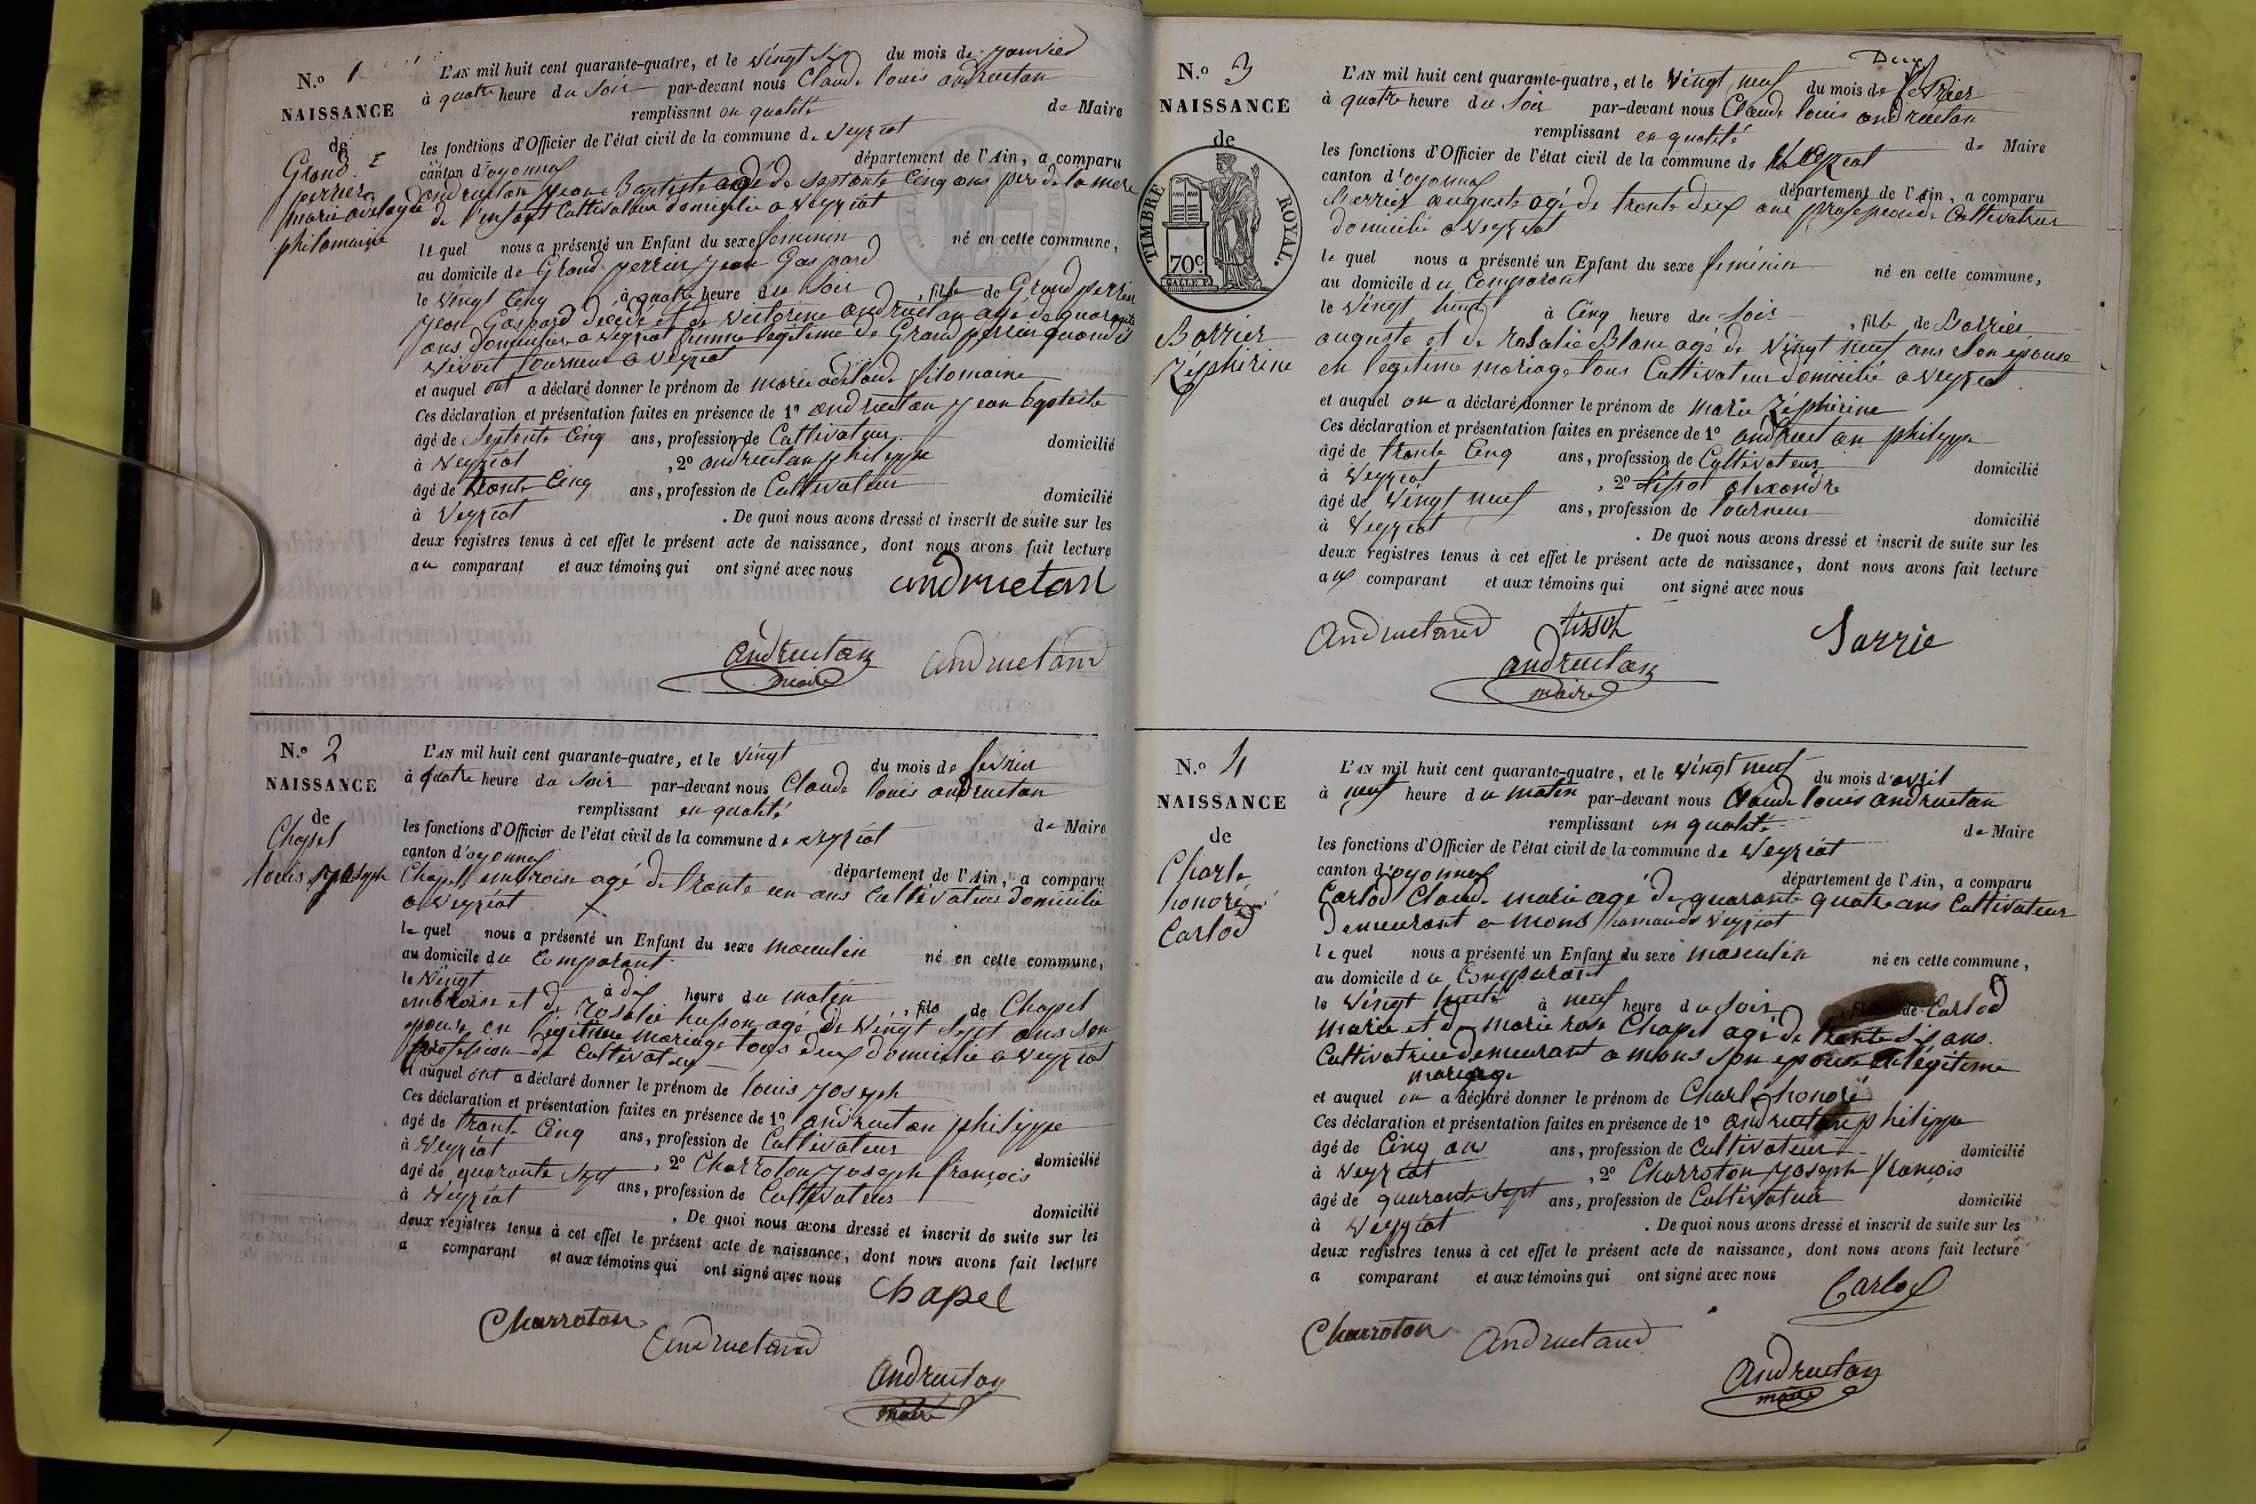 N.o 1
NAISSANCE
de
Grand
perrier
marie adelayde
philomaine
L'AN mil huit cent quarante-quatre, et le vingt six du mois de janvier
à quatre heure du soir par-devant nous Claude louis andruetan
remplissant en qualité de Maire
les fonctions d'Officier de l'état civil de la commune de veyziat
canton d'oyonnax département de l'Ain, a comparu
andruetan jean Baptiste agé de septante cinq ans pere de la mere
de l'enfant Cultivateur domicilié a veyziat
le quel nous a présenté un Enfant du sexe feminin né en cette commune,
au domicile de Grand perrier jean Gaspard
le vingt cinq à quatre heure du soir , fille de Grand perrier
jean Gaspard decédé et de victorine andruetan agé de quarante
ans domiciliée a veyziat femme legitime de Grand perrier quand il
vivoit tourneur a veyziat
et auquel ont a déclaré donner le prénom de marie adelaide filomaine
Ces déclaration et présentation faites en présence de 1o andruetan jean baptiste
âgé de septente cinq ans, profession de Cultivateur domicilié
à veyziat , 2o andruetan philippe
âgé de trante cinq ans, profession de Cultivateur domicilié
à veyziat . De quoi nous avons dressé et inscrit de suite sur les
deux registres tenus à cet effet le présent acte de naissance, dont nous avons fait lecture
au comparant et aux témoins qui ont signé avec nous andruetan
andruetan andruetand
maire
N.o 2
NAISSANCE
de
Chapel
louis joseph
L'AN mil huit cent quarante-quatre, et le vingt du mois de fevrier
à quatre heure du soir par-devant nous Claude louis andruetan
remplissant en qualité de Maire
les fonctions d'Officier de l'état civil de la commune de veyziat
canton d'oyonnax département de l'Ain, a comparu
Chapel embroise agé de trante un ans Cultivateur domicilié
a veyziat
le quel nous a présenté un Enfant du sexe masculin né en cette commune,
au domicile du Comparant
le vingt à dix heure du matin , fils de Chapel
embroise et de rosalie husson agé de vingt sept ans son
epouse en legitime mariage tous deux domicilié a veyziat
profession de Cultivateur
et auquel ont a déclaré donner le prénom de louis joseph
Ces déclaration et présentation faites en présence de 1o andruetan philippe
âgé de trante cinq ans, profession de Cultivateur domicilié
à veyziat , 2o Charroton joseph françois
âgé de quarante sept ans, profession de Cultivateur domicilié
à veyziat . De quoi nous avons dressé et inscrit de suite sur les
deux registres tenus à cet effet le présent acte de naissance, dont nous avons fait lecture
a comparant et aux témoins qui ont signé avec nous Chapel
Charroton andruetand
andruetan
maire
Deux
N.o 3
NAISSANCE
de
TIMBRE ROYAL.
70c
GALLE F.
Barrier
Zéphirine
L'AN mil huit cent quarante-quatre, et le vingt neuf du mois de fevrier
à quatre heure du soir par-devant nous Claude louis andruetan
remplissant en qualité de Maire
les fonctions d'Officier de l'état civil de la commune de veyziat
canton d'oyonnax département de l'Ain, a comparu
Barrier auguste agé de trante deux ans profession de Cultivateur
domicilié a veyziat
le quel nous a présenté un Enfant du sexe feminin né en cette commune,
au domicile du Comparant
le vingt huit à Cinq heure du soir , fille de Barrier
auguste et de rosalie Blanc agé de vingt neuf ans son épouse
en legitime mariage tous Cultivateur domicilié a veyziat
et auquel on a déclaré donner le prénom de marie Zéphirine
Ces déclaration et présentation faites en présence de 1o andruetan philippe
âgé de trante Cinq ans, profession de Cultivateur domicilié
à veyziat , 2o tissot alexandre
âgé de vingt neuf ans, profession de tourneur domicilié
à veyziat . De quoi nous avons dressé et inscrit de suite sur les
deux registres tenus à cet effet le présent acte de naissance, dont nous avons fait lecture
aux comparant et aux témoins qui ont signé avec nous
andruetand tissot Barrie
andruetan
maire
N.o 4
NAISSANCE
de
Charle
honoré
Carlod
L'AN mil huit cent quarante-quatre, et le vingt neuf du mois d'avril
à neuf heure du matin par-devant nous Claude louis andruetan
remplissant en qualité de Maire
les fonctions d'Officier de l'état civil de la commune de veyziat
canton d'oyonnax département de l'Ain, a comparu
Carlod Claude marie agé de quarante quatre ans Cultivateur
demeurant a mons hamaud veyziat
le quel nous a présenté un Enfant du sexe masculin né en cette commune,
au domicile du Comparant
le vingt huit à neuf heure du soir de Carlod
marie et de marie rose Chapel agé de trante six ans
Cultivatrice demeurant a mons son epouse legitime
mariage
et auquel on a déclaré donner le prénom de Charle honoré
Ces déclaration et présentation faites en présence de 1o andruetan philippe
âgé de Cinq ans, profession de Cultivateur domicilié
à veyziat , 2o Charroton joseph françois
âgé de quarante sept ans, profession de Cultivateur domicilié
à veyziat . De quoi nous avons dressé et inscrit de suite sur les
deux registres tenus à cet effet le présent acte de naissance, dont nous avons fait lecture
a comparant et aux témoins qui ont signé avec nous Carlod
Charroton andruetand
andruetan
maire